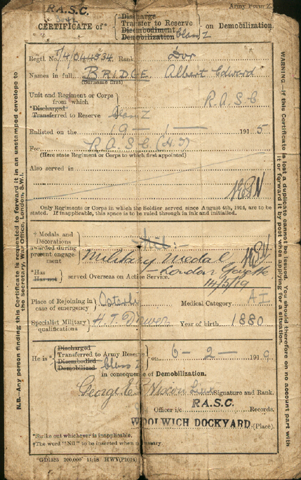 R.A.S.C. Army Form Z.
Discharge
Transfer to Reserve
CERTIFICATE of* Disembodiment on Demobilization.
Demobilization Class Z
Regtl. No. Rank Dvr
Names in full BRIDGE Albert Edward
(Surname first)
Unit and Regiment or Corps
from which R.A.S.C
*Discharged
Transferred to Reserve Class Z
Enlisted on the 9 191
For R.A.S.C (H.T)
(Here state Regiment or Corps to which first appointed)
Also served in
Only Regiments or Corps in which the Soldier served since August 4th, 1914, are to be
stated. If inapplicable, this space is to be ruled through in ink and initialled.
† Medals and
Decorations
awarded during Military Medal
present engage-
ment London Gazette
*Has served Overseas on Active Service.
Place of Rejoining in Medical Category A I
case of emergency
Specialist Military H.T. Driver Year of birth 1880
qualifications
He is* Discharged
Transferred to Army Reserve Class Z on 6-2- 1919
Disembodied
Demobilized
in consequence of Demobilization.
Signature and Rank
Officer i/c R.A.S.C. Records.
WOOLWICH DOCKYARD (Place)
*Strike out whichever is inapplicable.
†The word "NIL" to be inserted when necessary
WARNING.—If this Certificate is lost a duplicate cannot be issued. You should therefore on no account part with it or forward it by post when applying for a situation.
N.B. Any person finding this Certificate is requested to forward it in an unstamped envelope to the Secretary, War Office, London, S.W.1.